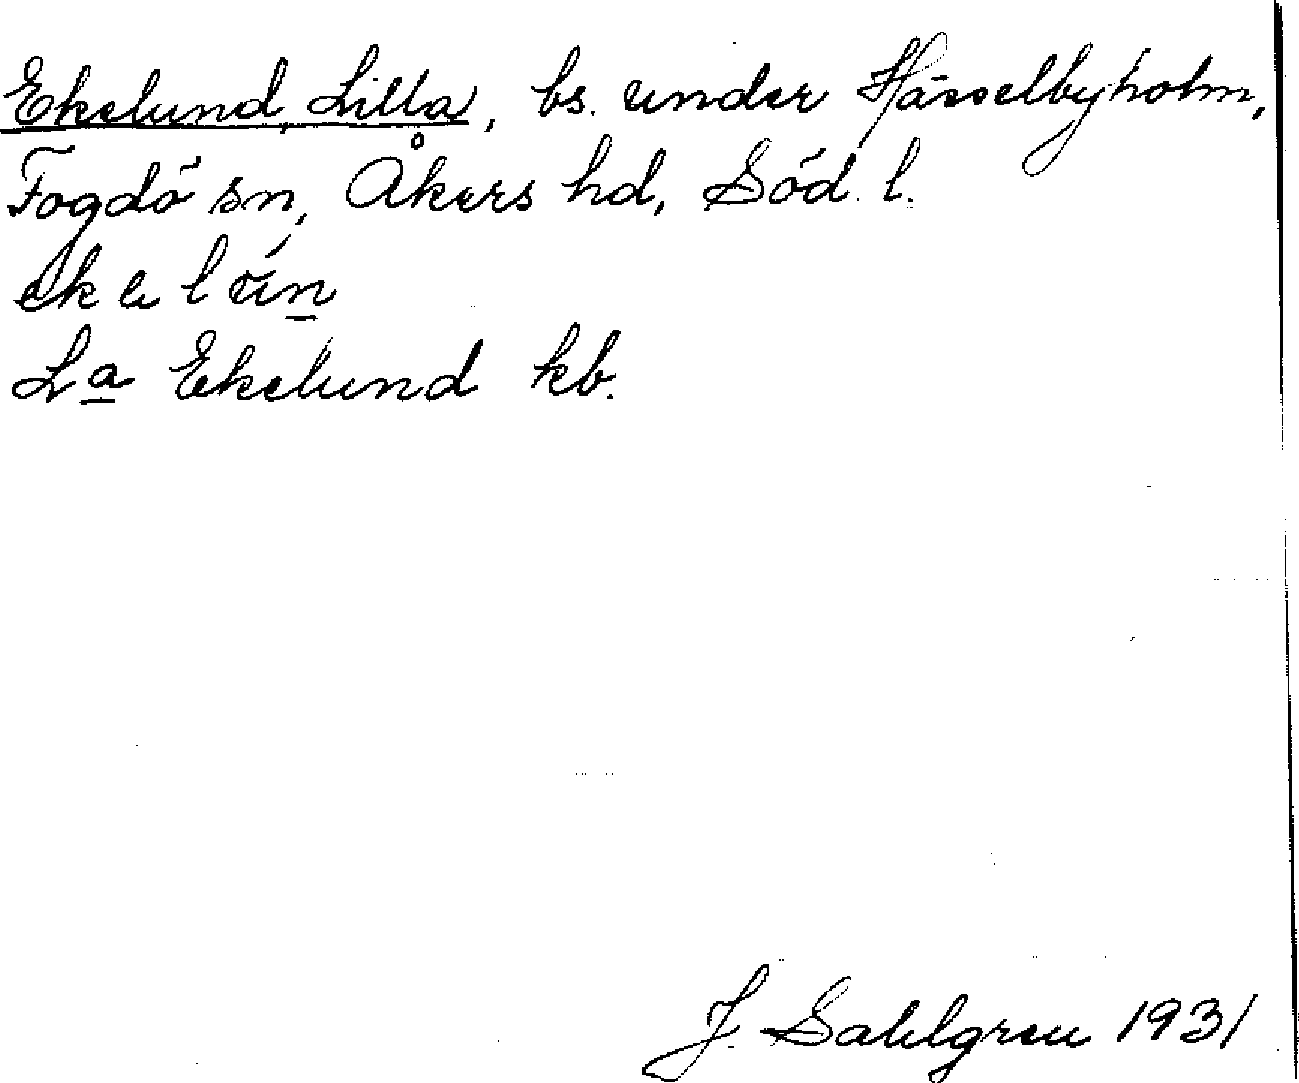 Ekelund, Lilla, bs. under Hässelbyholm,
Fogdö sn, Åkers hd, Söd. l.
La Ekelund kb.
J. Sahlgren 1931